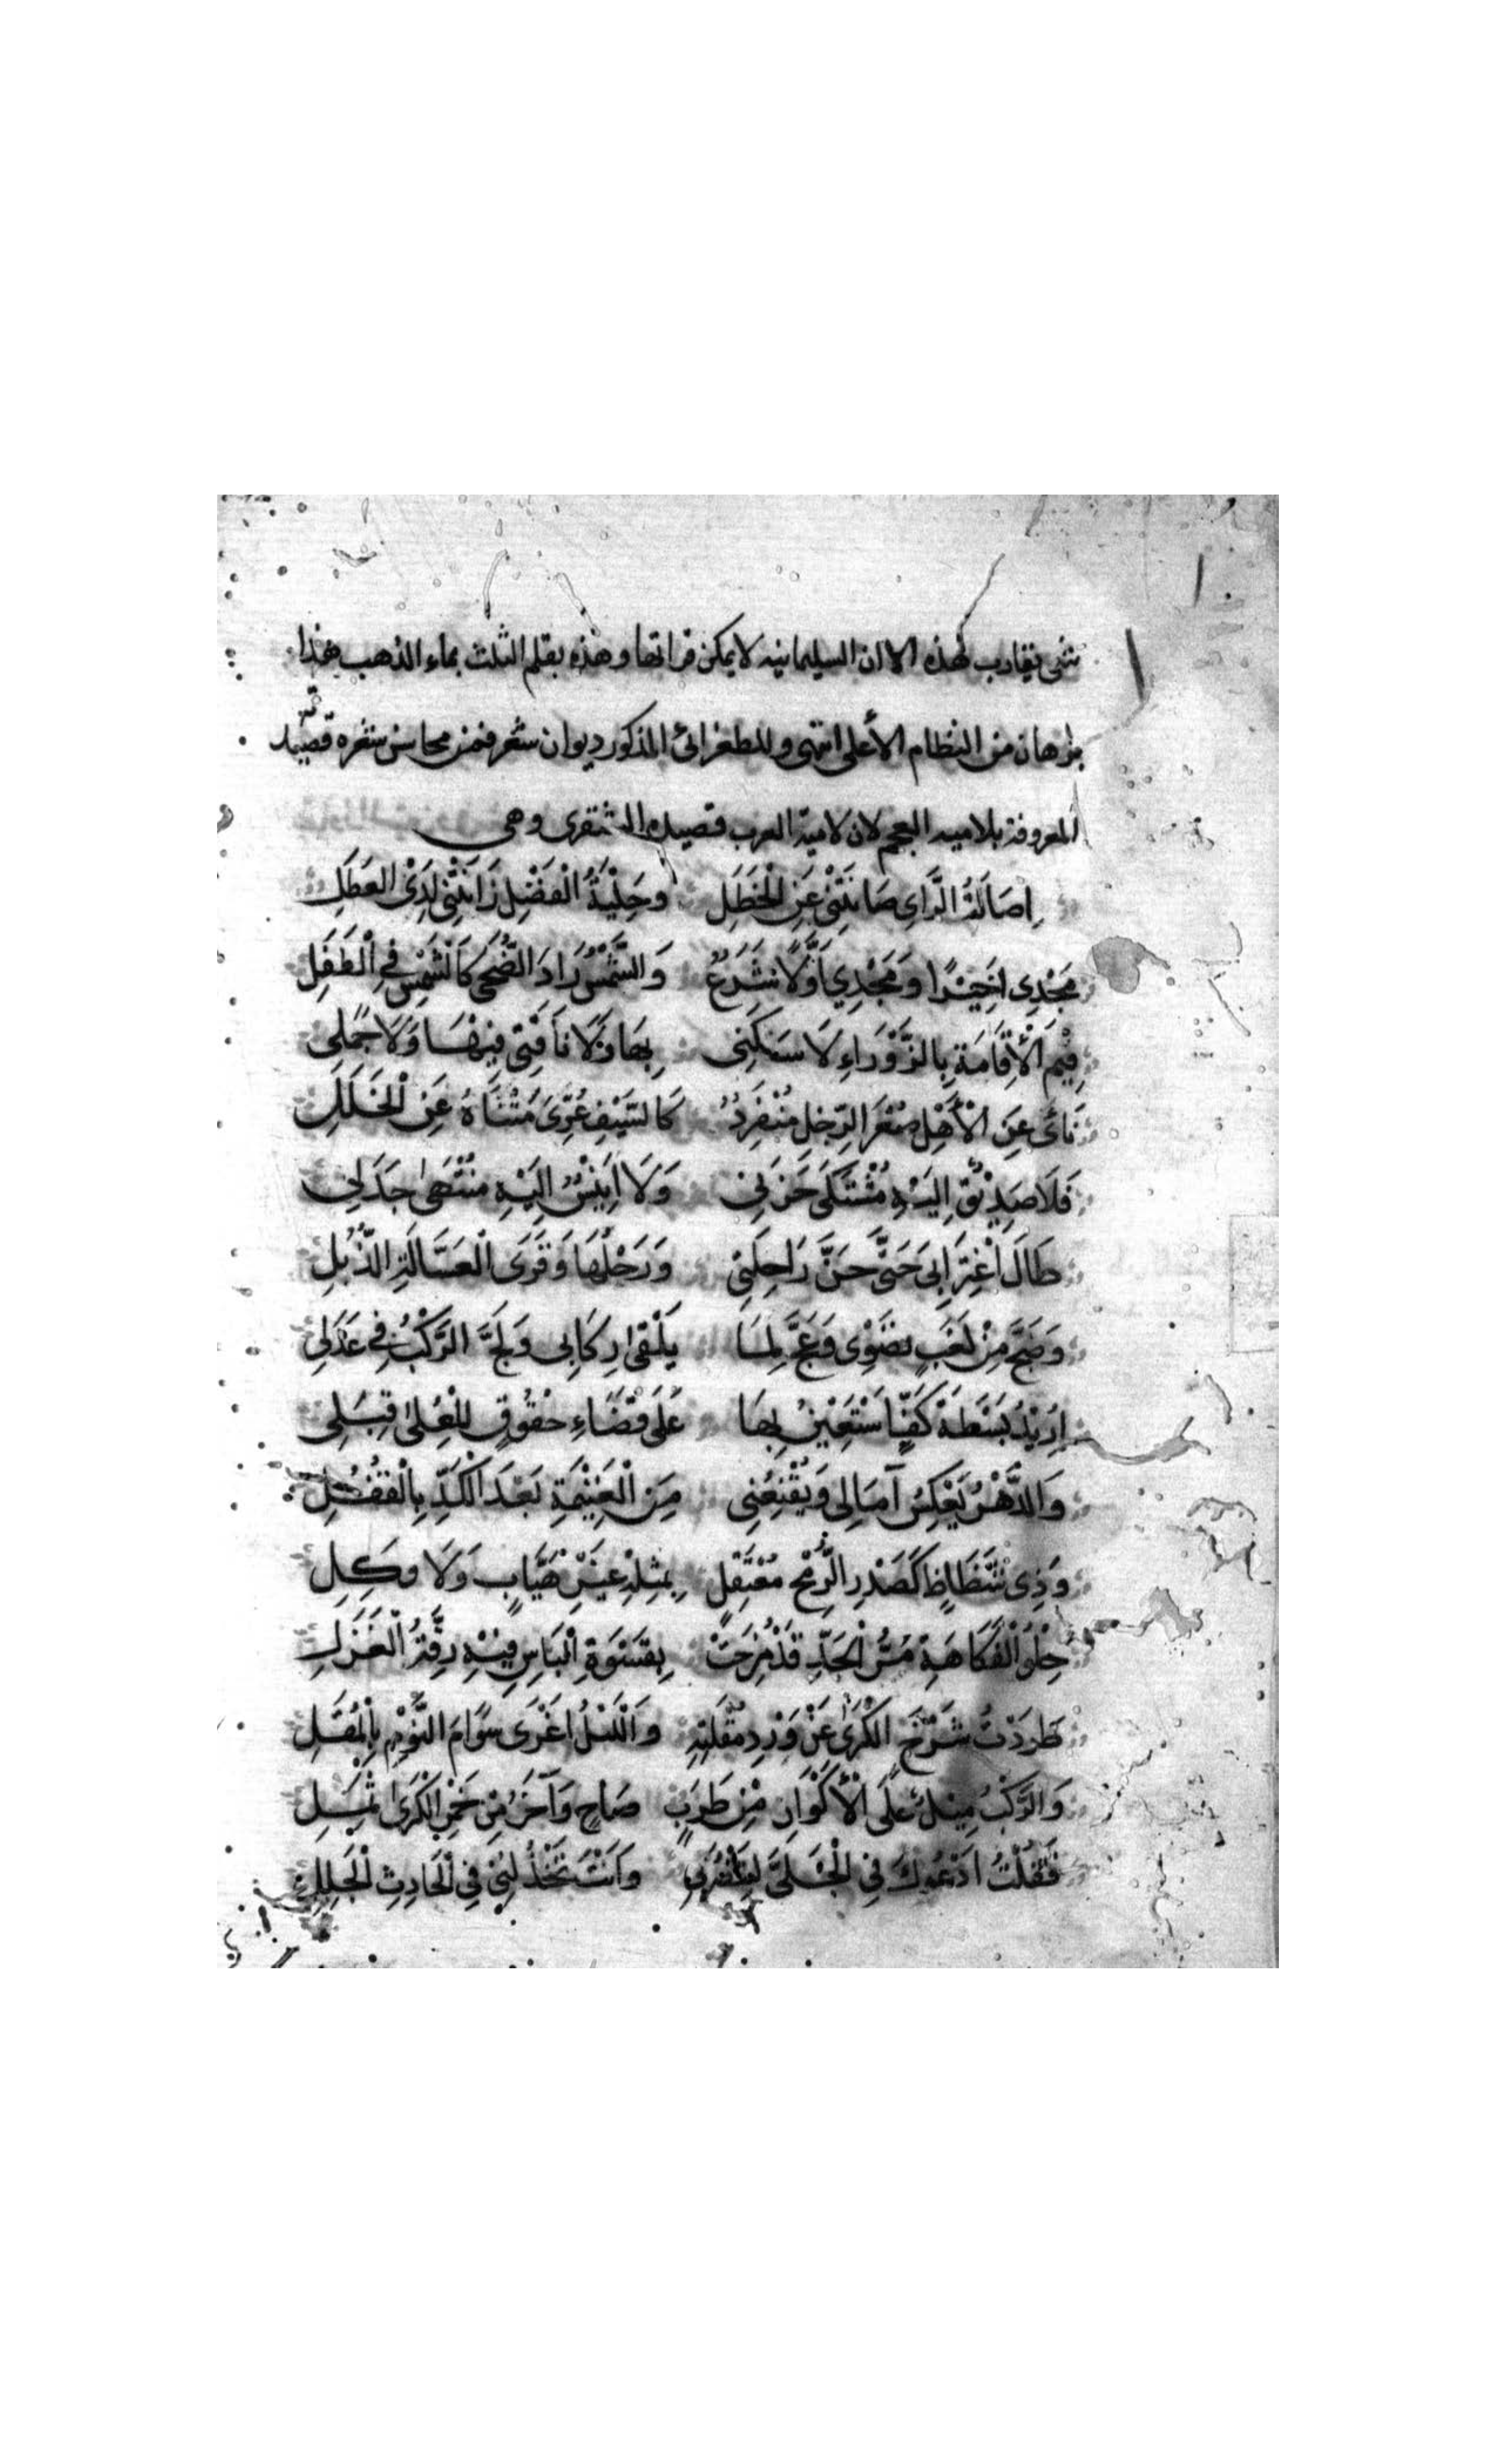 شى يقارب لهذه الا ان السليمانيه لا يمكن قرائتها وهذه بقلم الثلث بماء الذهب هذا
برهان من النظام الأعلى انتهى وللطغرائى المذكور ديوان شعر فمن محاسن شعره قصيدته
المعروفة بلاميه العجم لان لامية العرب قصيدة الشنقرى وهى
اِصَالَةُ الرَّاىِ صَانَتْنِى عَنِ الْخَطَلِ وَحِلْيَةُ الْفَضْلِ زَانَتْنِى لَدَى العَطَلِ
مَجْدِى اَخِيْرًا وَمَجْدِي اَوَّلًا شَرَعٌ وَالشَّمْسُ رَادَ الضُّحَى كَالشَّمْسِ فِى الْطَفَلِ
فِيْمَ الْأِقَامَةِ بِالزَّوْرَاءِ لَا سَكَنِى بِهَا وَلَا نَاقَتِى فِيْهَا وَلَا جَمَلِى
نَائ عَنِ الْأَهْلِ صِفْرَ الرِّجْلِ مُنْفَرِدٌ كَالسَّيْفِ عُرِّىَ مَتْنَاهُ عَنِ الْخَلَلِ
فَلَا صَدِيْقٌ اِلَيْهِ مُشْتَكَى حَزَنِى وَلَا اَنِيْسٌ اِلَيْهِ مُنْتَهَى جَذَلِى
طَالَ اْغْتِرَابِىَ حَتَّى حَنَّ رَاحِلَتِى وَرَحْلُهَا وَقَرَى الْعَسَّالَةِ الذُّبُلِ
وَضَجَّ مِنْ لَغَبٍ نضْوِى وَعَجَّ لِمَا يَلْقَى رِكَابِى وَلَجَّ الرَّكْبُ فِى عَذَلِى
اُرِيْدُ بَسْطَةَ كَفٍّ اَسْتَعِيْنُ بِهَا عَلَى قَضَاءِ حُقُوْقٍ لِلْعُلَى قِبَلِى
وَالدَّهْرُ يَعْكِسُ آمَالِى وَيُقْنِعُنِى مِنَ الْغَنِيْمَةِ بَعْدَ الْكَدِّ بِالْقَفَلِ
وَذِى شَطَاطٍ كَصَدْرِ الرُّمْحِ مُعْتَقِلٍ بِمِثْلِهِ غَيْرِ هَيَّابٍ وَلَا وَكِلِ
حِلْوِ الْفُكَاهَةِ مُرُّ الْجَدِّ قَدْ مُزِجَتْ بِقَسْوَةِ الْبَاسِ فِيْهِ رِقَّةُ الْغَزَلِ
طَرَدْتُ سَرْحَ الْكَرَى عَنْ وَرْدِ مُقْلَتِهِ وَالْلَيْلُ اَغْرَى سَوَامَ النَّوْمِ بِالْمُقَلِ
وَالرَّكْبُ مِيْلٌ عَلَى الْأَكْوَارِ مِنْ طَرَبٍ صَاحٍ وَآخَرُ مِنْ خَمْرِ الْكَرَى ثَمِلِ
فَقُلْتُ اَدْعُوْكَ فِى الْجُلَّى لِتَنْصُرَنِى وَاَنْتَ تَخْذُلُنِى فِى الْحَادِثِ الْجَلَلِ